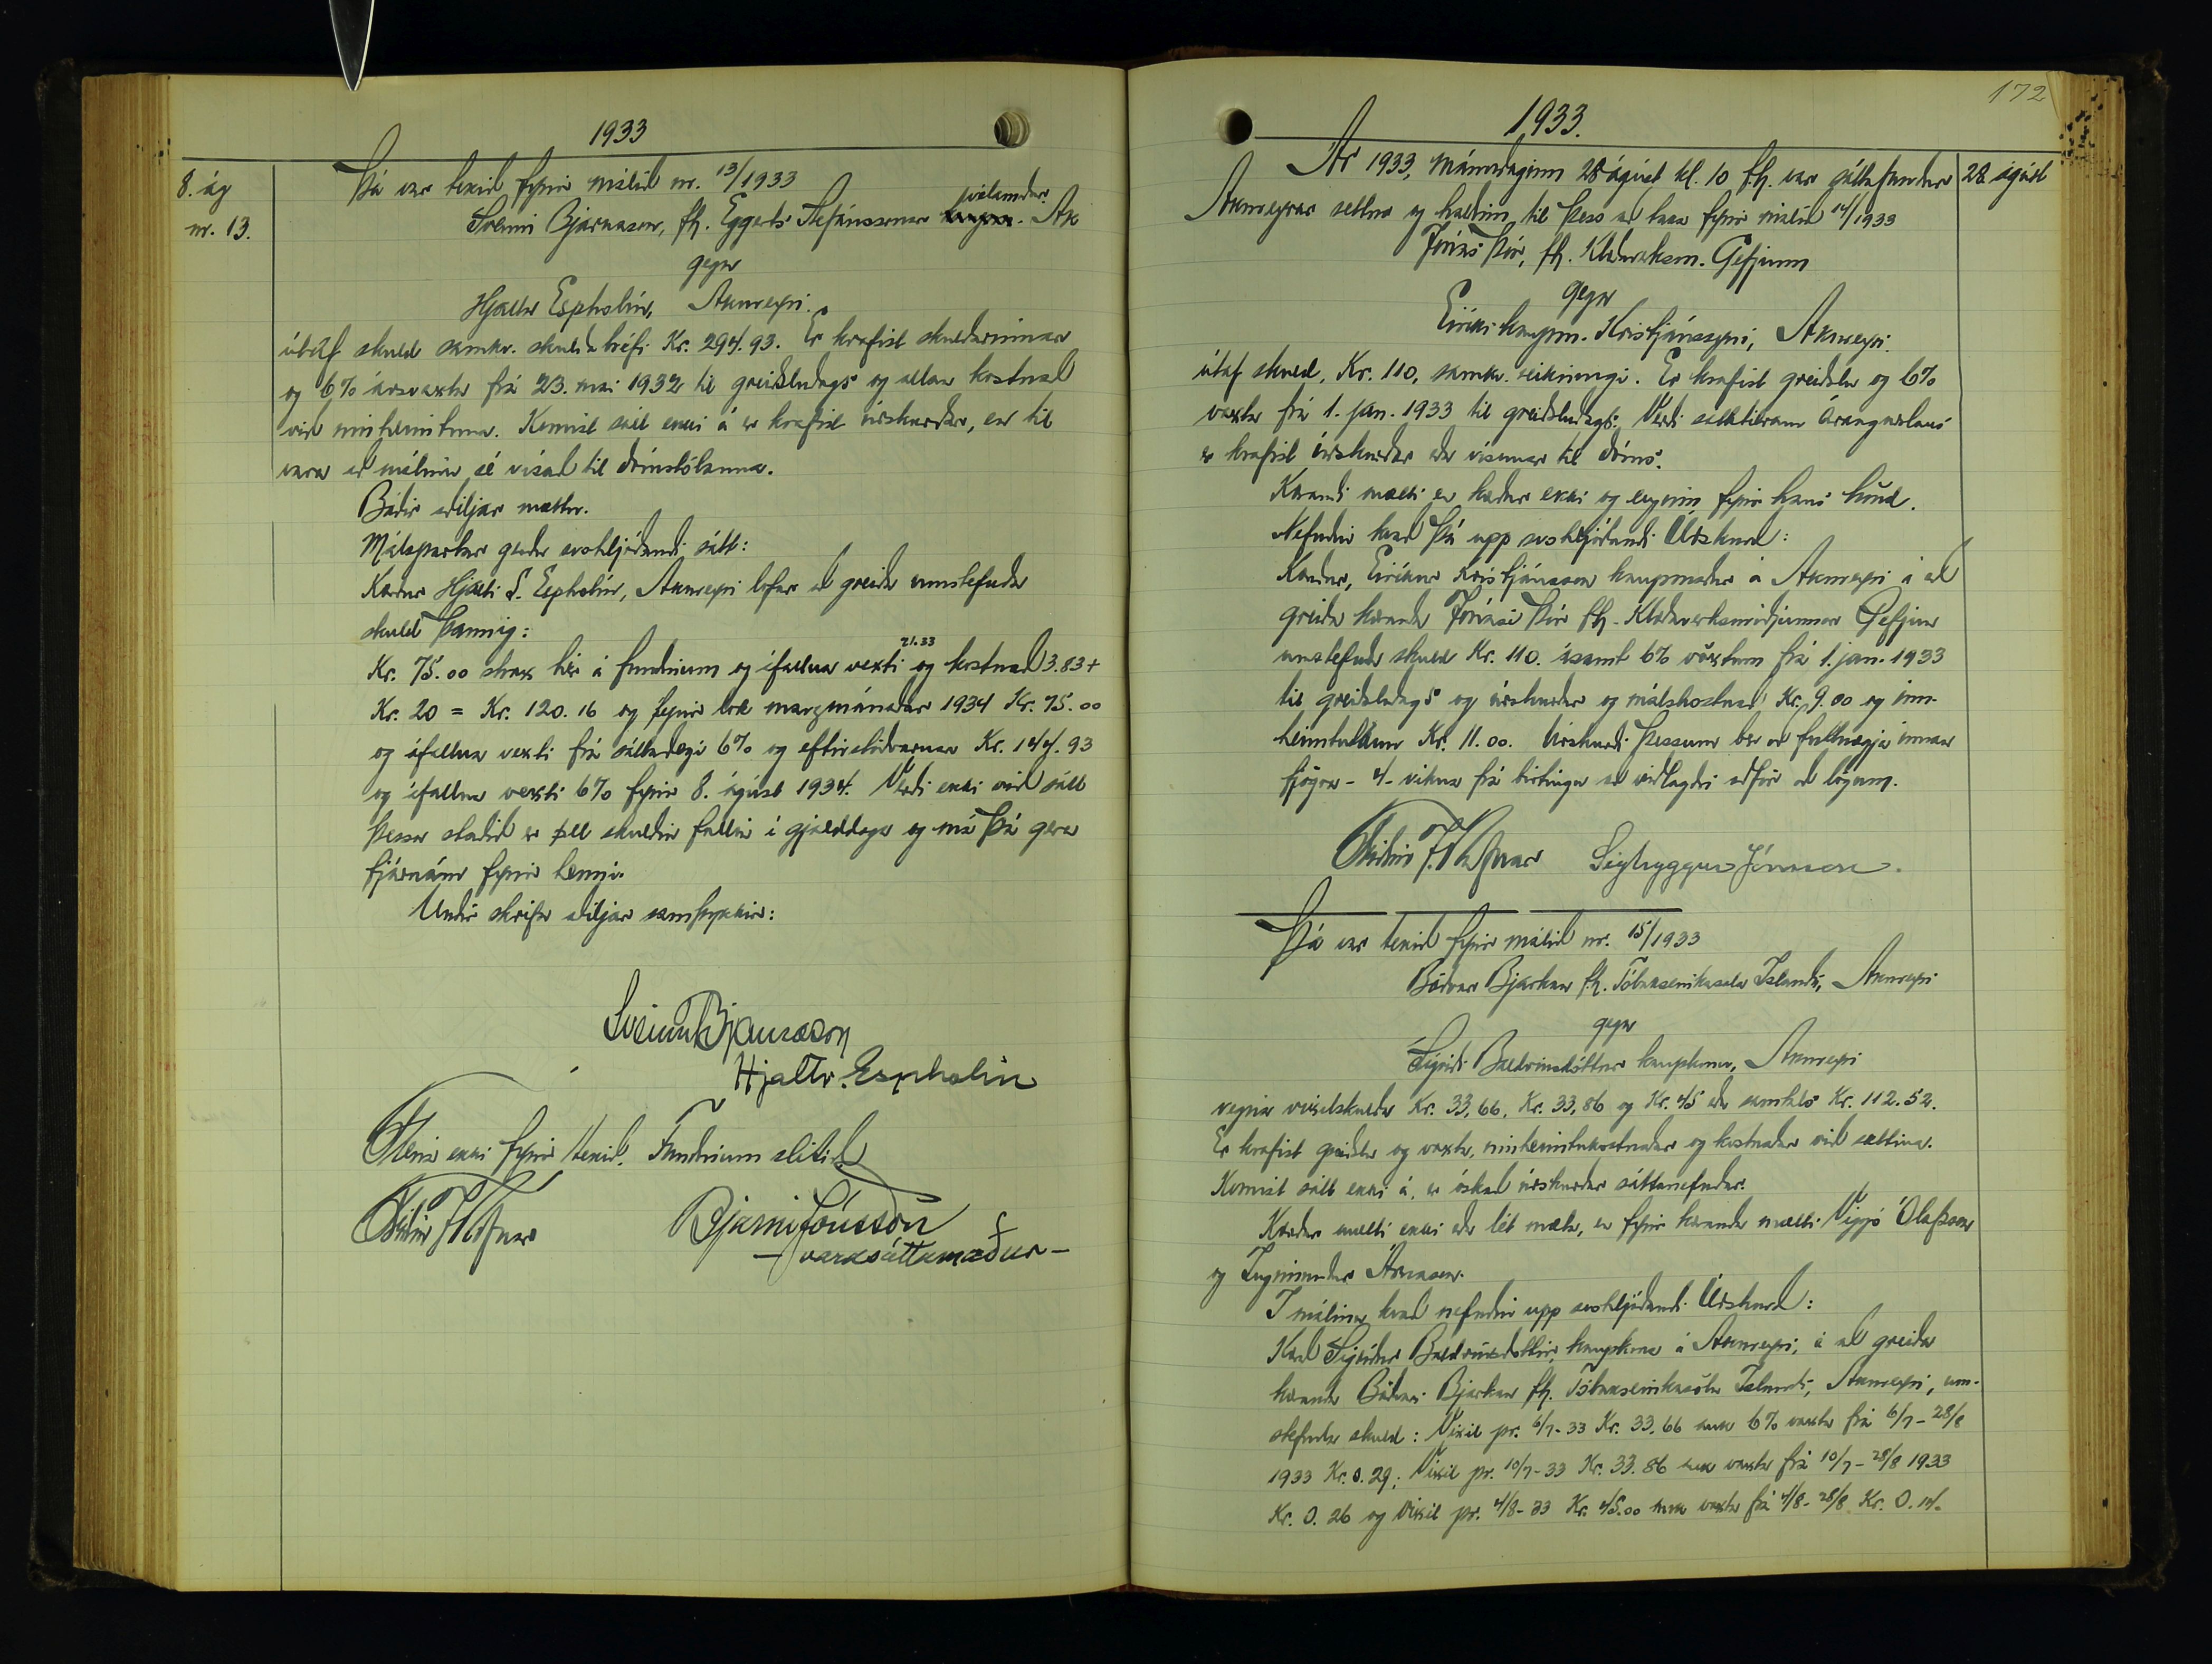 1933
8. ág
nr. 13.
Þá var tekið fyrir málið nr. 13/1933
Sveinn Bjarnason, fh. Eggerts Stefánssonar Ak
gegn
Hjalta Espholin, Akureyri.
útaf skuld samkv. skuldabréfi Kr. 294.93. Er krafist skuldarinnar
og 6% ársvaxta frá 23. maí 1932 til greiðsludags og allan kostnað
við innheimtuna. Komist sátt ekki á er krafist úrskurðar, en til
vara að málinu sé vísað til dómstólanna.
Báðir aðiljar mættu.
Málspartar gerðu svohljóðandi sátt:
Kærður Hjalti S. Espholin, Akureyri lofar að greiða umstefnda
skuld þannig:
Kr. 75.00 strax hér á fundinum og áfallna vexti 21.33 og kostnað 3.83 +
Kr. 20 = Kr. 120.16 og fyrir lok marzmánaðar 1934 Kr. 75.00
og áfallna vexti frá sáttadegi 6% og eftirstöðvarnar Kr. 144.93
og áfallna vexti 6% fyrir 8. ágúst 1934. Verði ekki við sátt
þessa staðið er öll skuldin fallin í gjalddaga og má þá gera
fjárnám fyrir henni.
Undir skrifa aðiljar samþykkir:
Sveinn Bjarnason
Hjalti Espholin
Fleira ekki fyrir tekið. Fundinum slitið
Bjarni Jónsson
- varasáttamaður -
172
1933.
28. ágúst
Ár 1933, mánudaginn 28 ágúst kl. 10 f.h. var sáttafundur
Akureyrar settur og haldinn til þess að taka fyrir málið 14/1933
Jónas Þór, fh. Klæðaverksm. Gefjunn
gegn
Eiríki kaupm. Kristjánssyni, Akureyri.
útaf skuld, Kr. 110, samkv. reikningi. Er krafist greiðslu og 6%
vaxta frá 1. jan. 1933 til greiðsludags. Verði sáttatilraun árangurslaus
er krafist úrskurðar eða vísunar til dóms.
Kærandi mætti en kærður ekki og enginn fyrir hans hönd.
Nefndin kvað þá upp svohljóðandi Úrskurð:
Kærður, Eiríkur Kristjánsson kaupmaður á Akureyri á að
greiða kæranda Jónasi Þór fh. Klæðaverksmiðjunnar Gefjun
umstefnda skuld Kr. 110. ásamt 6% vöxtum frá 1. jan. 1933
til greiðsludags og úrskurðar og málskostnað Kr. 9.00 og inn-
heimtulaun Kr. 11.00. Úrskurði þessum ber að fullnægja innan
fjögra - 4 - vikna frá birtingu að viðlagðri aðför að lögum.
Sigtryggur Jónsson.
Þá var tekið fyrir málið nr. 15/1933
Böðvar Bjarkan f.h. Tóbakseinkasala Íslands, Akureyri
gegn
Sigríði Baldvinsdóttur kaupkonu, Akureyri
vegna víxilskulda Kr. 33,66, Kr. 33,86 og Kr. 45 eða samtals Kr. 112.52.
Er krafist greiðslu og vaxta, innheimtukostnaðar og kostnaðar við sáttina.
Komist sátt ekki á, er óskað úrskurðar sáttanefndar.
Kærða mætti ekki eða lét mæta, en fyrir kæranda mætti Viggó Ólafsson
og Ingimundur Árnason.
Í málinu kvað nefndin upp svohljóðandi Úrskurð:
Kærð Sigríður Baldvinsdóttir, kaupkona á Akureyri, á að greiða
kæranda Böðvari Bjarkan fh. Tóbakseinkasölu Íslands, Akureyri, um-
stefnda skuld: Víxil pr. 6/7-33 Kr. 33,66 auk 6% vaxta frá 6/7 - 28/8
1933 Kr. 0.29; Víxil pr. 10/7-33 Kr. 33.86 auk vaxta frá 10/7 - 28/8 1933
Kr. 0.26 og víxil pr. 4/8-33 Kr. 45.00 auk vaxta frá 4/8 - 28/8 Kr. 0.14.